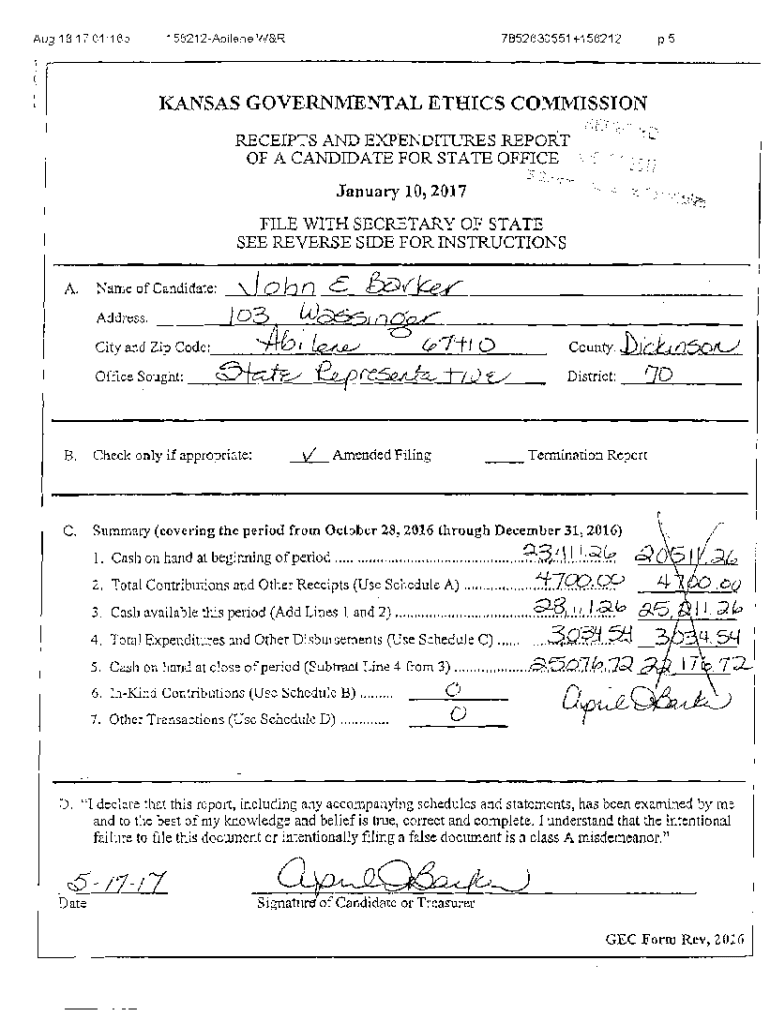 Aug 18 17 01:16p 158212-Abilene W&R 7852630551+158212 p.5
KANSAS GOVERNMENTAL ETHICS COMMISSION
RECEIPTS AND EXPENDITURES REPORT
OF A CANDIDATE FOR STATE OFFICE
January 10, 2017
FILE WITH SECRETARY OF STATE
SEE REVERSE SIDE FOR INSTRUCTIONS
A. Name of Candidate: John E Barker
Address: 103 Wassinger
City and Zip Code: Abilene 67410 County: Dickinson
Office Sought: State Representative District: 70
B. Check only if appropriate: ✓ Amended Filing Termination Report
C. Summary (covering the period from October 28, 2016 through December 31, 2016)
1. Cash on hand at beginning of period 23,411.26 20511.26
2. Total Contributions and Other Receipts (Use Schedule A) 4700.00 4700.00
3. Cash available this period (Add Lines 1 and 2) 28,111.26 25,211.26
4. Total Expenditures and Other Disbursements (Use Schedule C) 3034.54 3034.54
5. Cash on hand at close of period (Subtract Line 4 from 3) 25076.72 22,176.72
6. In-Kind Contributions (Use Schedule B) 0
7. Other Transactions (Use Schedule D) 0
April D Barker
D. "I declare that this report, including any accompanying schedules and statements, has been examined by me
and to the best of my knowledge and belief is true, correct and complete. I understand that the intentional
failure to file this document or intentionally filing a false document is a class A misdemeanor."
5-17-17 April D Barker
Date Signature of Candidate or Treasurer
GEC Form Rev, 2016